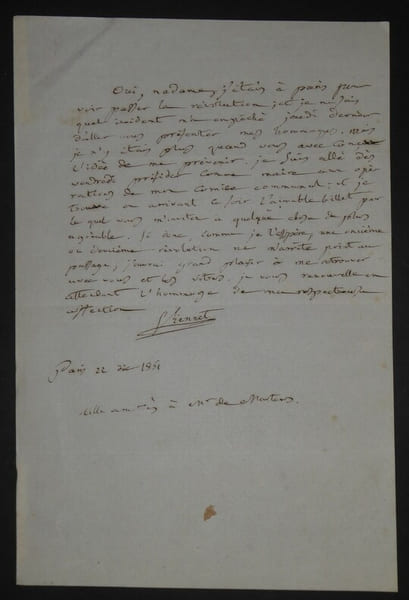 Oui, madame, j'étais à paris pour
voir passer la révolution; et je ne sais
quel incident m'a empêché jeudi dernier
d'aller vous présenter mes hommages. mais
je n'y étais plus quand vous avez conçu
l'idée de me prévenir. je suis allé dès
vendredi présider comme maire aux opé
rations de mon comice communal: et je
trouve en arrivant ce soir l'aimable billet par
lequel vous m'invitez à quelque chose de plus
agréable. Si donc, comme je l'espère, une onzième
ou douzième révolution ne m'arrête point au
passage, j'aurai grand plaisir à me retrouver
avec vous et les vôtres. je vous renouvelle en
attendant l'hommage de ma respectueuse
affection
Paris 22 déc 1851
Mille amitiés à Mr de